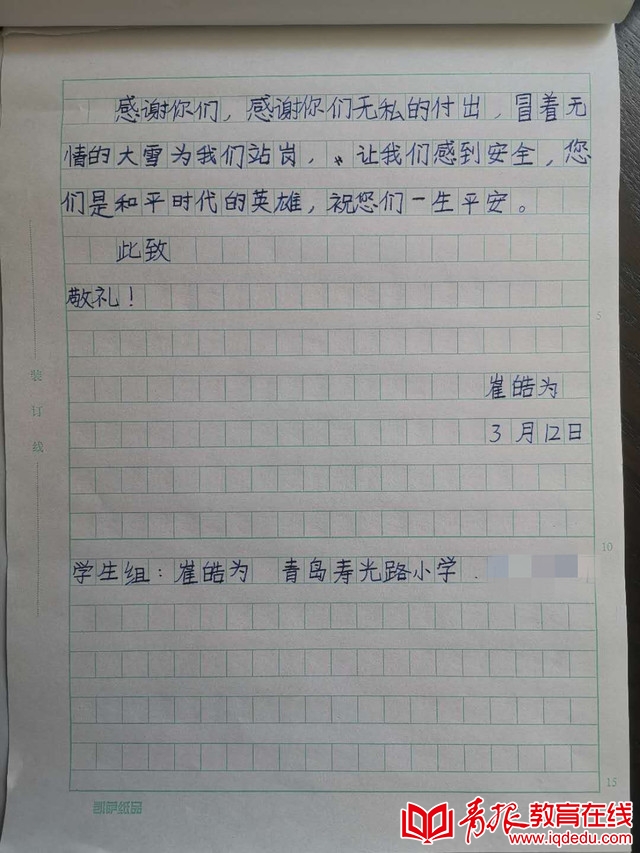 感谢你们，感谢你们无私的付出，冒着无
情的大雪为我们站岗，让我们感到安全，您
们是和平时代的英雄，祝您们一生平安。
此致
敬礼！
5
装订线
崔皓为
3月12日
10
学生组：崔皓为 青岛寿光路小学.
15
凯萨纸品
青报教育在线
www.iqdedu.com